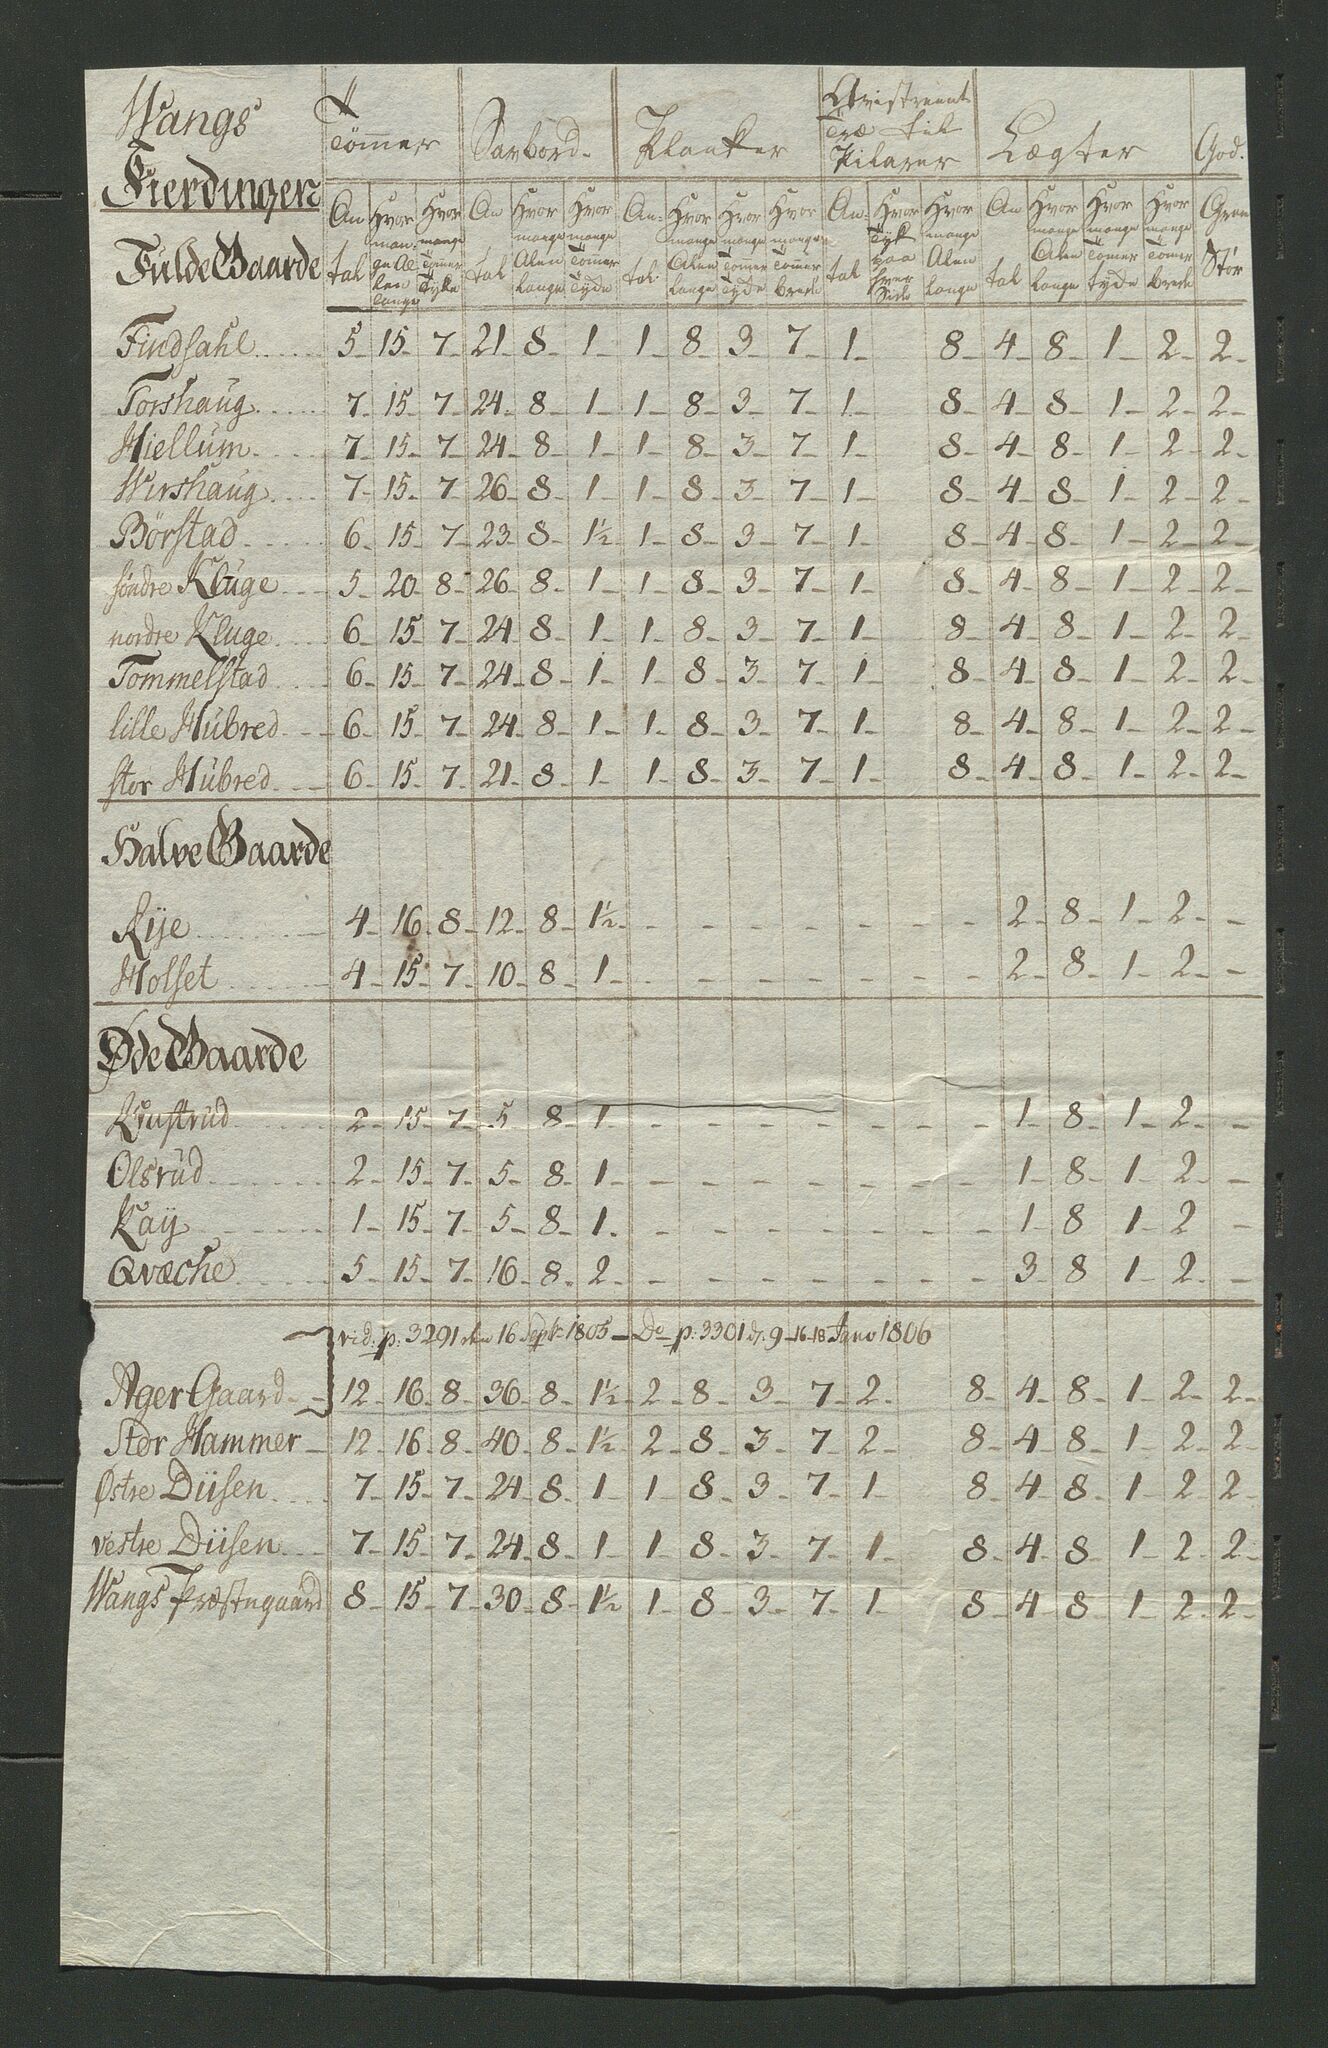 Wangs
Fierdingen
Fulde Gaarde
Tømmer
Savbord
Planker
Qvistreent Træ til Pilarer
Lægter
God.
An tal
Hvor man- ge Al len lange
Hvor mange Tomer Tyke
An tal
Hvor mange Alen lange
Hvor mange Tomer Tyde
An- tal
Hvor mange Alen lange
Hvor mange Tommer Tyde
Hvor mange Tommer brede
An- tal
Hvor Tyk paa hver Side
Hvor mange Alen lange
An tal
Hvor mange Alen lange
Hvor mange Tomer tyde
Hvor mange Tomer brede
Gran Stör
Findsahl 5 15 7 21 8 1 1 8 3 7 1 8 4 8 1 2 2
Torshaug 7 15 7 24 8 1 1 8 3 7 1 8 4 8 1 2 2
Hiellum 7 15 7 24 8 1 1 8 3 7 1 8 4 8 1 2 2
Wirshaug 7 15 7 26 8 1 1 8 3 7 1 8 4 8 1 2 2
Börstad 6 15 7 23 8 1½ 1 8 3 7 1 8 4 8 1 2 2
söndre Kluge 5 20 8 26 8 1 1 8 3 7 1 8 4 8 1 2 2
nordre Kluge 6 15 7 24 8 1 1 8 3 7 1 8 4 8 1 2 2
Tommelstad 6 15 7 24 8 1 1 8 3 7 1 8 4 8 1 2 2
lille Hubred 6 15 7 24 8 1 1 8 3 7 1 8 4 8 1 2 2
stor Hubred 6 15 7 21 8 1 1 8 3 7 1 8 4 8 1 2 2
Halve Gaarde
Rije 4 16 8 12 8 1½ - - - - - - - 2 8 1 2 -
Holset 4 15 7 10 8 1 - - - - - - - 2 8 1 2 -
Øde Gaarde
2 15 7 5 8 1 - - - - - - - 1 8 1 2 -
Olsrud 2 15 7 5 8 1 - - - - - - - 1 8 1 2 -
Kaÿ 1 15 7 5 8 1 - - - - - - - 1 8 1 2 -
Qvæche 5 15 7 16 8 2 - - - - - - - 3 8 1 2 -
vid: p: 3291 den 16 Septr 1805 - Do p: 3301 d: 9-16-18 Jano 1806
Ager Gaard 12 16 8 36 8 1½ 2 8 3 7 2 8 4 8 1 2 2
Stor Hammer 12 16 8 40 8 1½ 2 8 3 7 2 8 4 8 1 2 2
Østre Diisen 7 15 7 24 8 1 1 8 3 7 1 8 4 8 1 2 2
vestre Diisen 7 15 7 24 8 1 1 8 3 7 1 8 4 8 1 2 2
Wangs Præstegaard 8 15 7 30 8 1½ 1 8 3 7 1 8 4 8 1 2 2